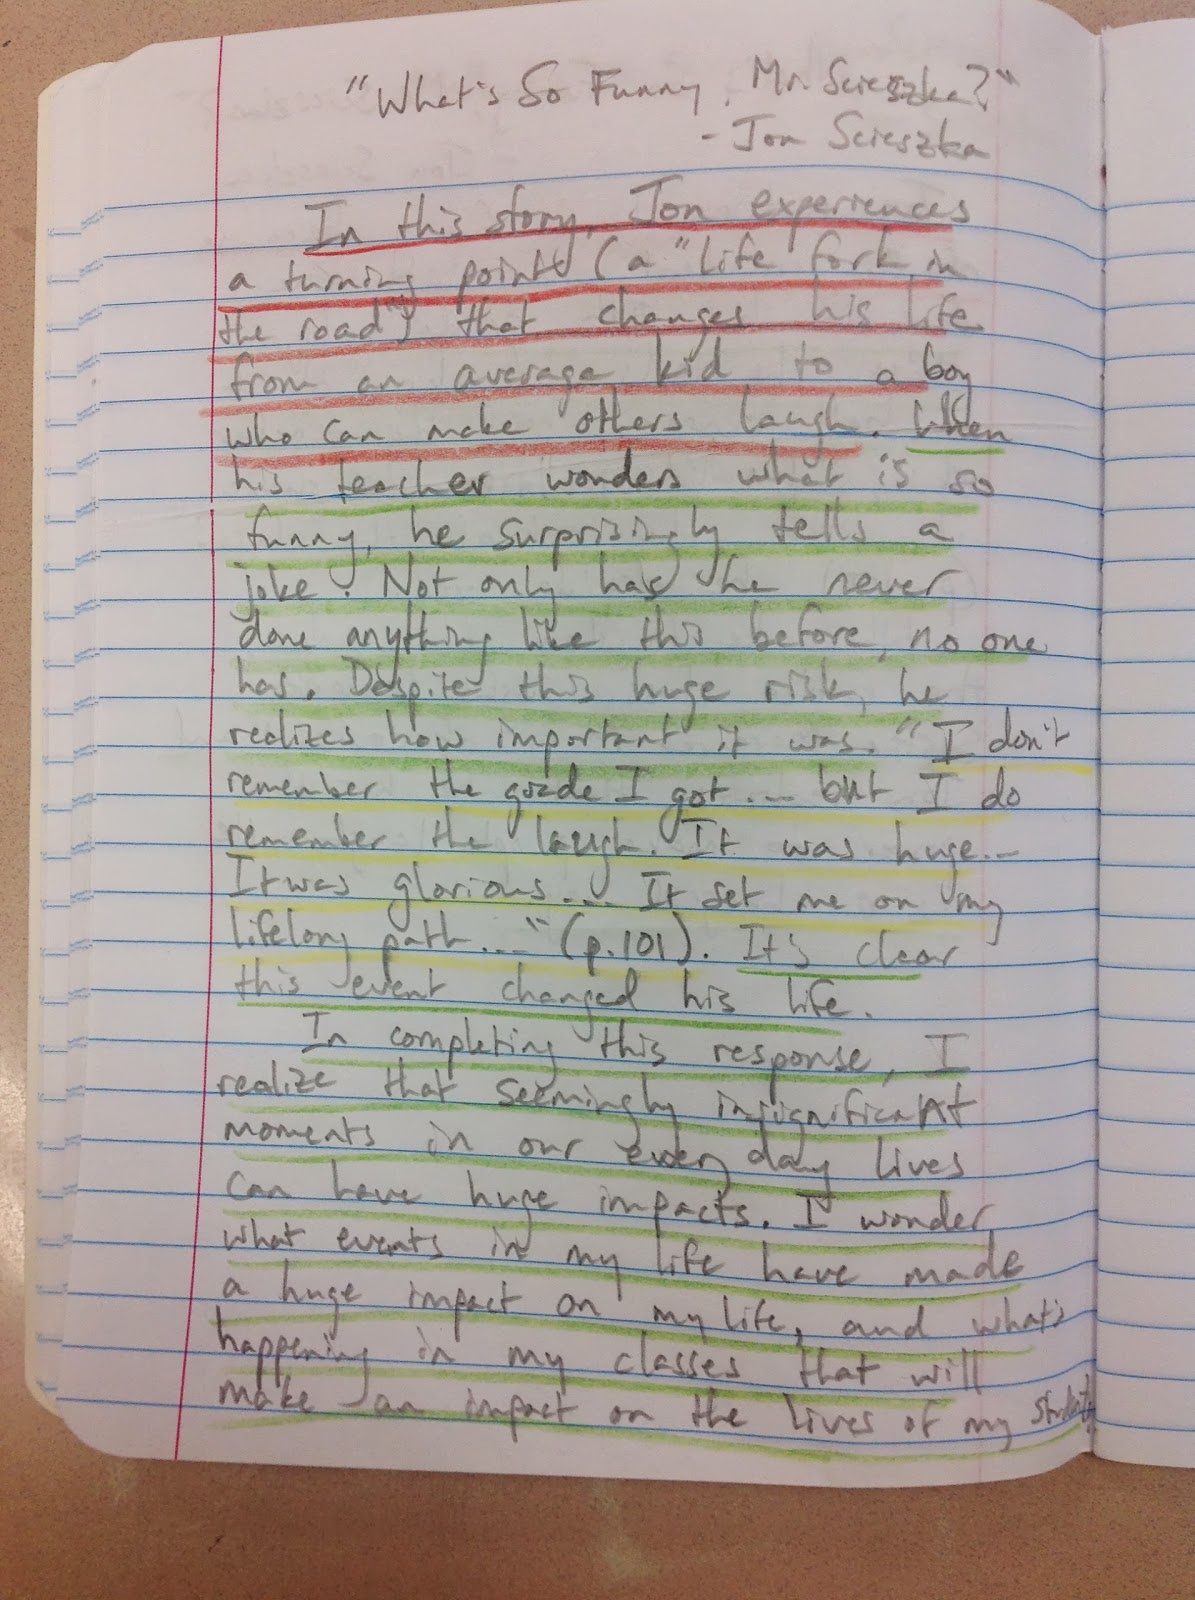 "What's So Funny, Mr. Scieszka?"
- Jon Scieszka
In this story, Jon experiences
a turning point (a "life fork in
the road") that changes his life
from an average kid to a boy
who can make others laugh. When
his teacher wonders what is so
funny, he surprisingly tells a
joke. Not only has he never
done anything like this before, no one
has. Despite this huge risk, he
realizes how important it was. "I don't
remember the grade I got... but I do
remember the laugh. It was huge...
It was glorious... It set me on my
lifelong path..." (p.101). It's clear
this event changed his life.
In completing this response, I
realize that seemingly insignificant
moments in our every day lives
can have huge impacts. I wonder
what events in my life have made
a huge impact on my life, and what's
happening in my classes that will
make an impact on the lives of my students